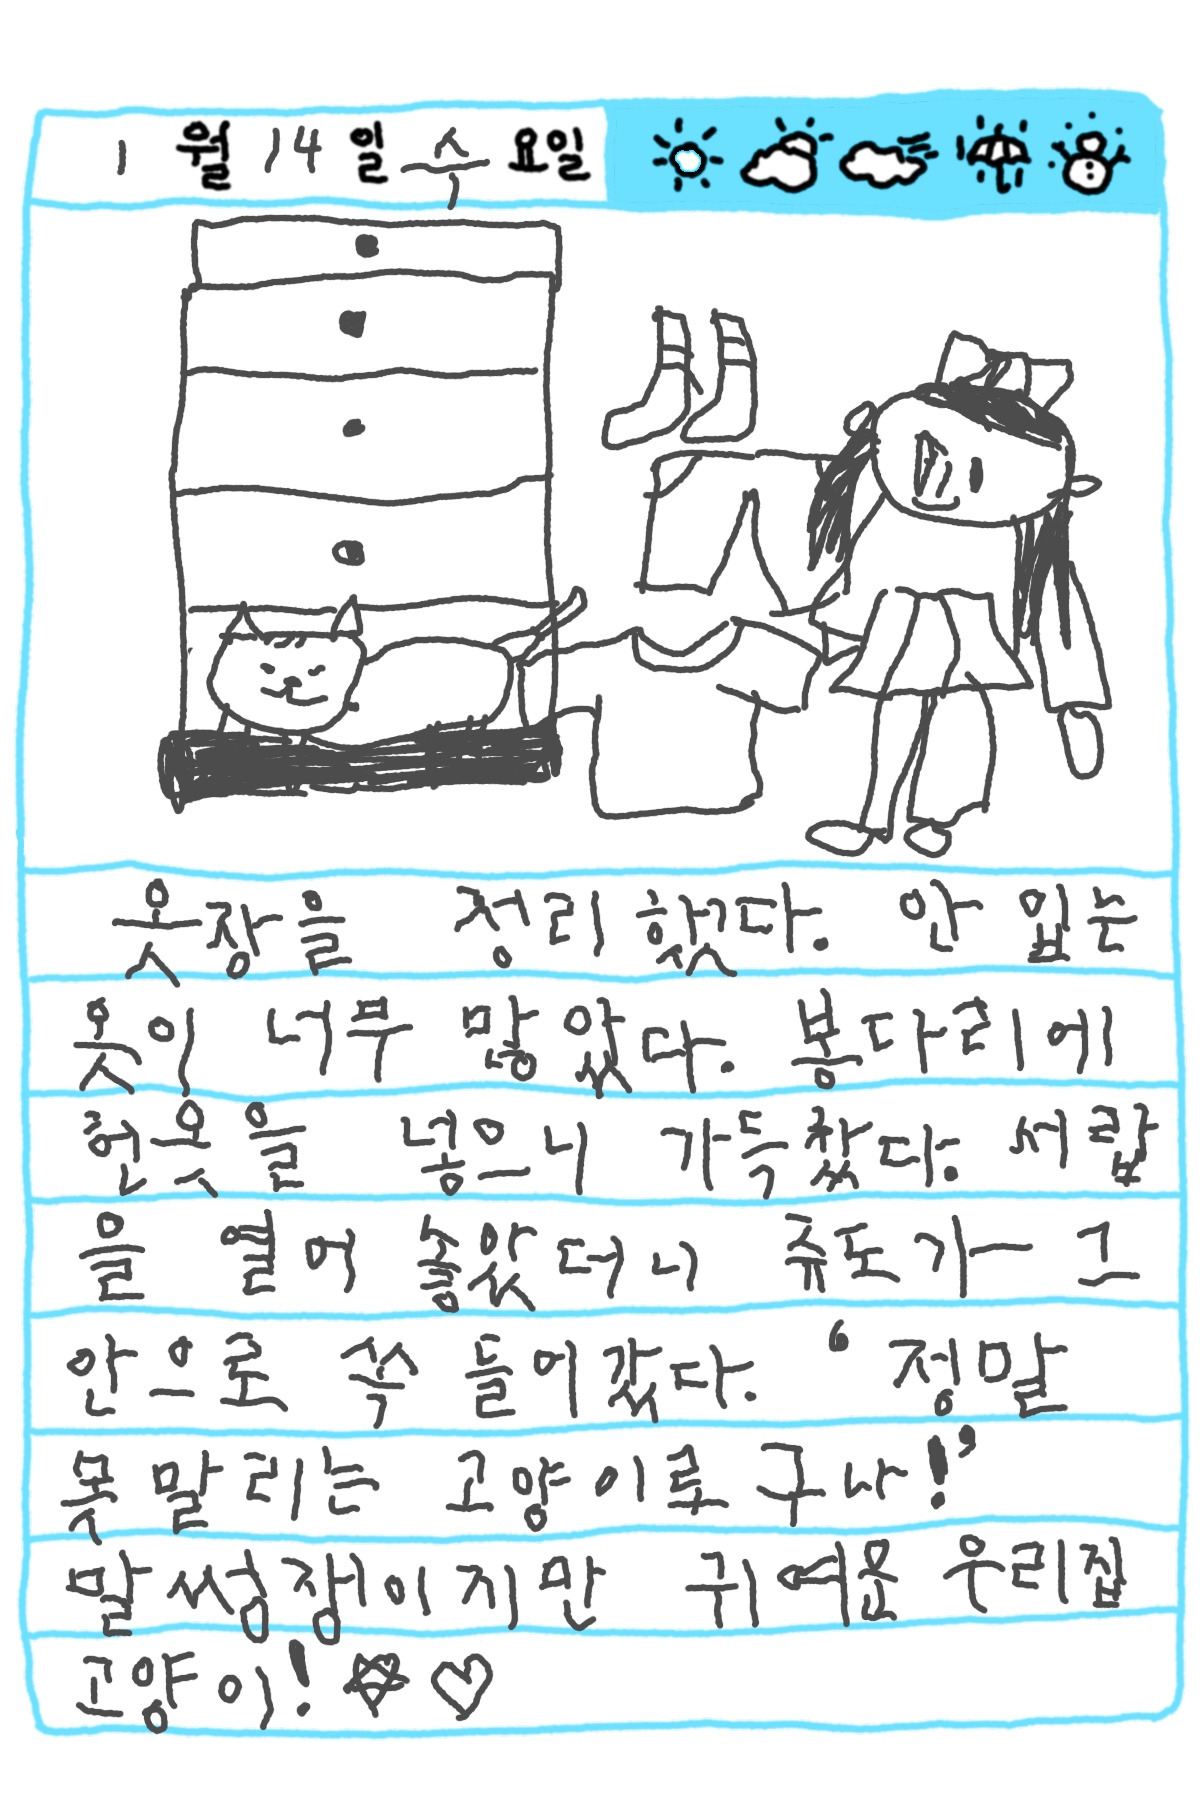 1 월 14 일 수 요일
옷장을 정리했다. 안 입는
옷이 너무 많았다. 봉다리에
헌옷을 넣으니 가득찼다. 서랍
을 열어 놓았더니 쥬도가 그
안으로 쏙 들어갔다. ‘정말
못말리는 고양이로구나!’
말썽쟁이지만 귀여운 우리집
고양이!